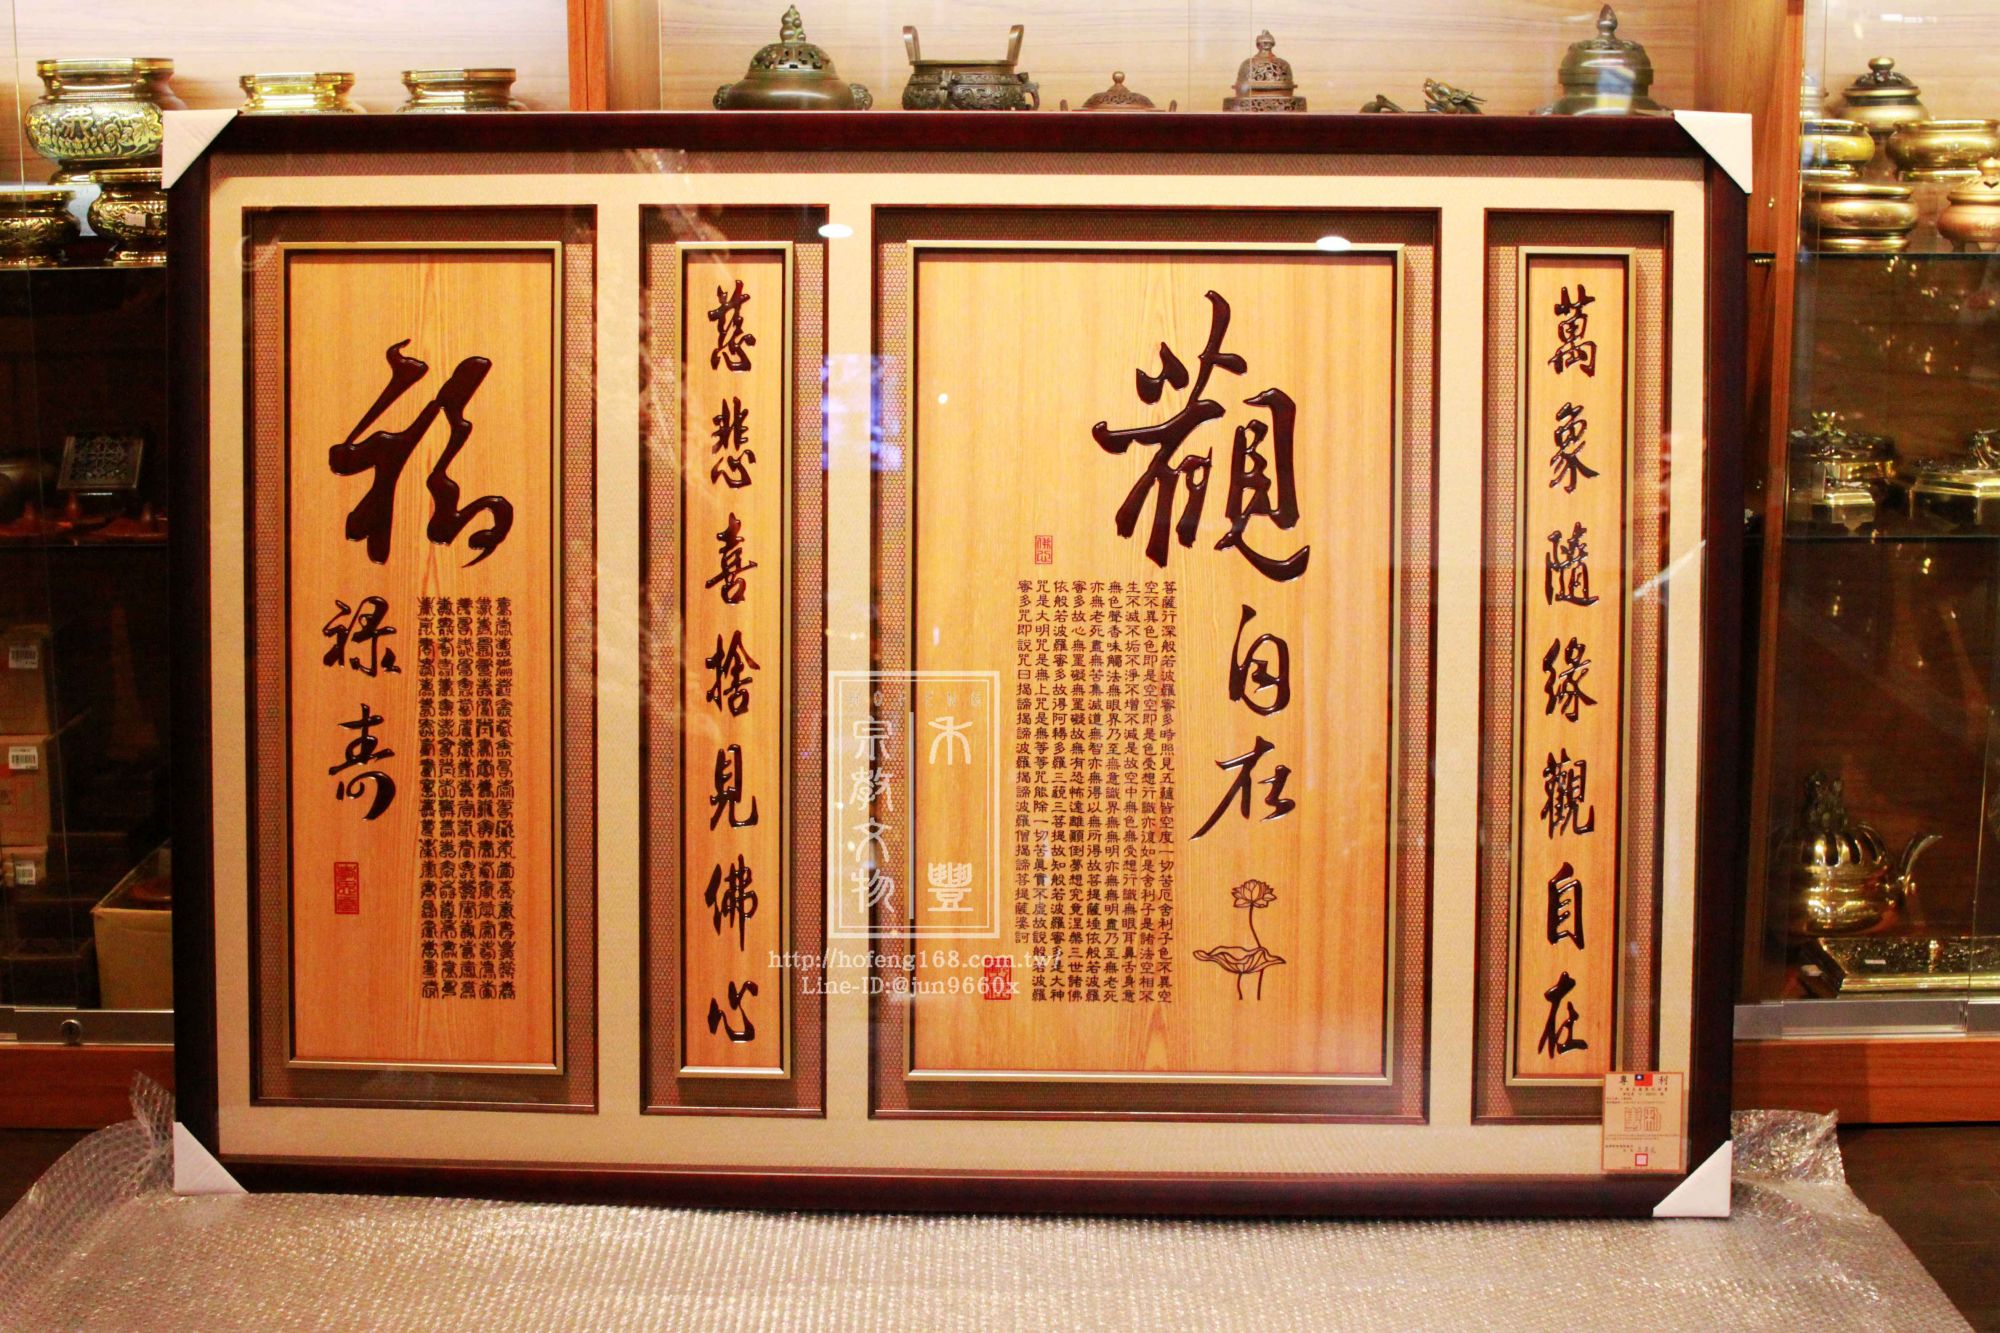 萬象隨緣觀自在
觀自在
菩薩行深般若波羅蜜多時照見五蘊皆空度一切苦厄舍利子色不異空
空不異色色即是空空即是色受想行識亦復如是舍利子是諸法空相不
生不滅不垢不淨不增不減是故空中無色無受想行識無眼耳鼻舌身意
無色聲香味觸法無眼界乃至無意識界無無明亦無無明盡乃至無老死
亦無老死盡無苦集滅道無智亦無得以無所得故菩提薩埵依般若波羅
蜜多故心無罣礙無罣礙故無有恐怖遠離顛倒夢想究竟涅槃三世諸佛
依般若波羅蜜多故得阿耨多羅三藐三菩提故知般若波羅蜜多是大神
咒是大明咒是無上咒是無等等咒能除一切苦真實不虛故說般若波羅
蜜多咒即說咒曰揭諦揭諦波羅揭諦波羅僧揭諦菩提薩婆訶
慈悲喜捨見佛心
福祿壽
HOFENG
禾豐
宗教文物
http://hofeng168.com.tw/
Line-ID:@jun9660x
專利